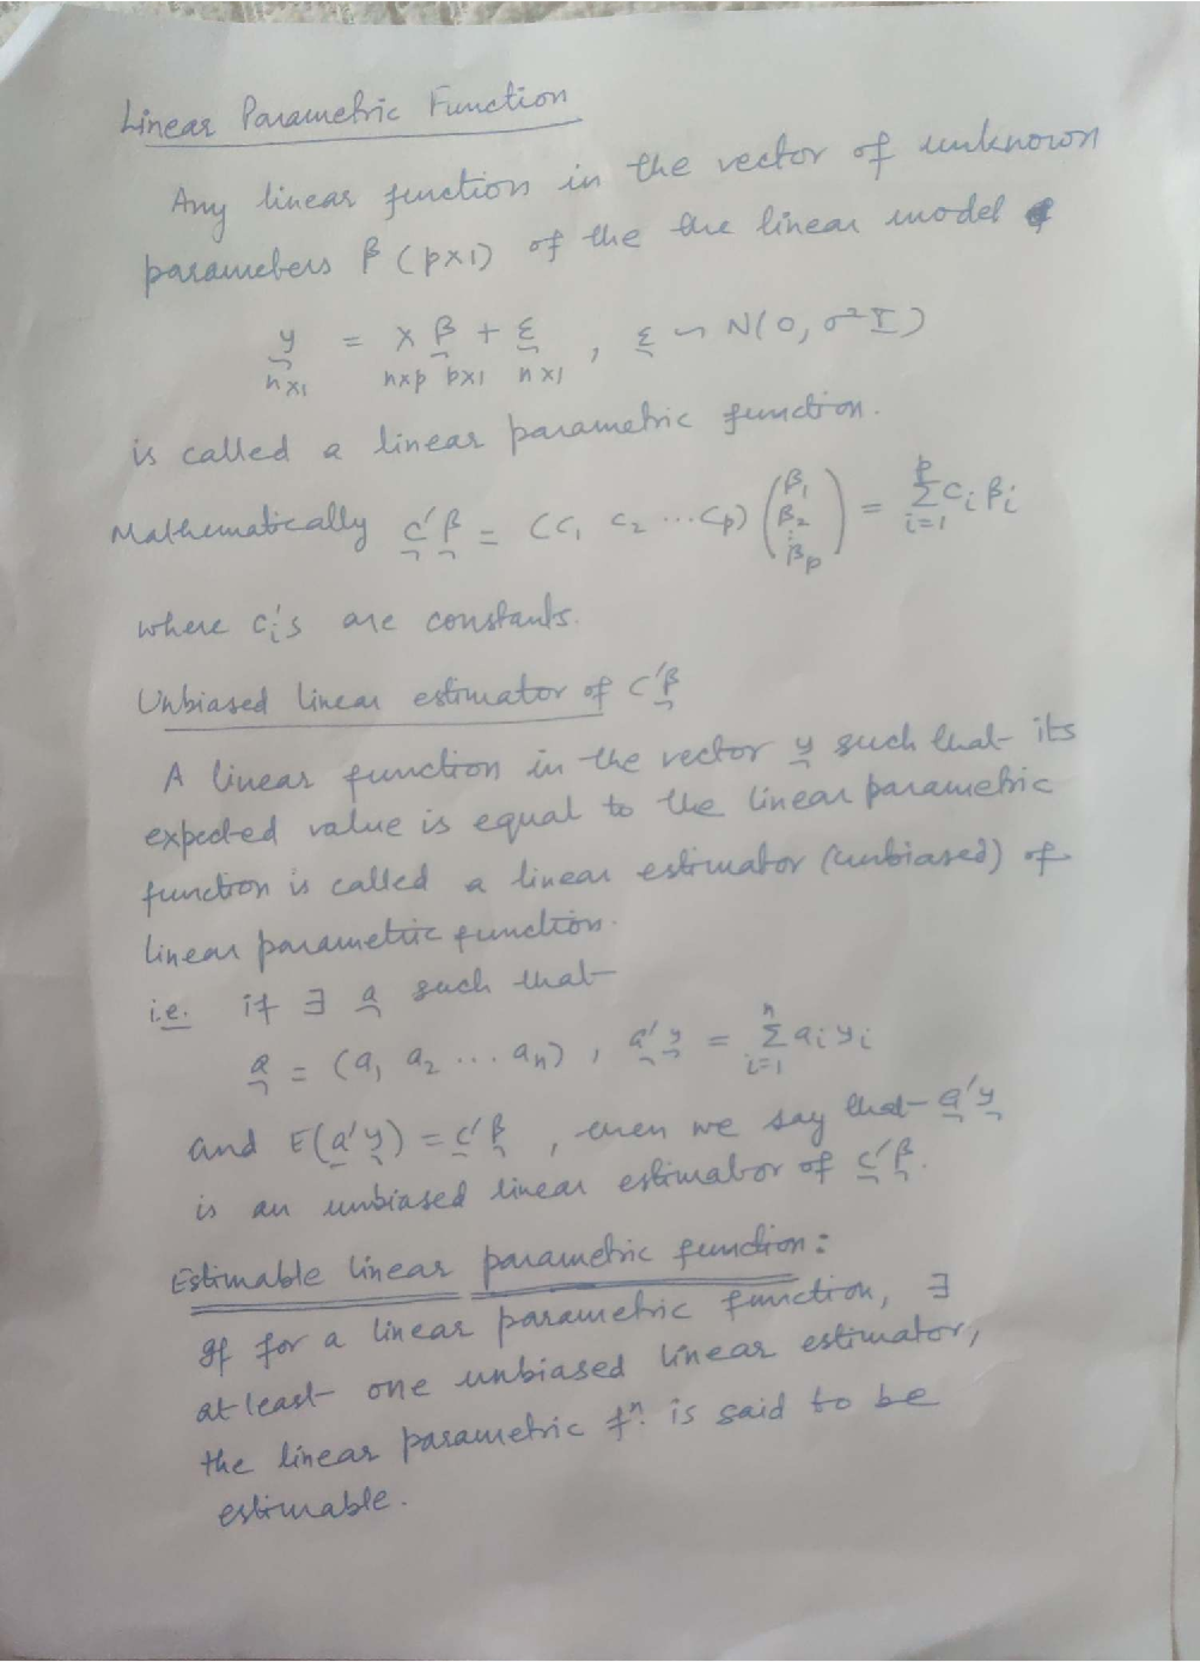 Linear Parametric Function
Any linear function in the vector of unknown
parameters β (p×1) of the the linear model
y = X β + ε , ε ~ N(0, σ²I)
n×1 n×p p×1 n×1
is called a linear parametric function.
Mathematically c'β = (c₁ c₂ ... cₚ) (β₁ β₂ ⋮ βₚ) = Σᵢ₌₁ᵖ cᵢ βᵢ
where cᵢ's are constants.
Unbiased linear estimator of c'β
A linear function in the vector y such that its
expected value is equal to the linear parametric
function is called a linear estimator (unbiased) of
linear parametric function.
i.e. if ∃ a such that
a = (a₁ a₂ ... aₙ) , a'y = Σᵢ₌₁ⁿ aᵢ yᵢ
and E(a'y) = c'β , then we say that a'y
is an unbiased linear estimator of c'β.
Estimable linear parametric function:
If for a linear parametric function, ∃
at least one unbiased linear estimator,
the linear parametric fⁿ. is said to be
estimable.